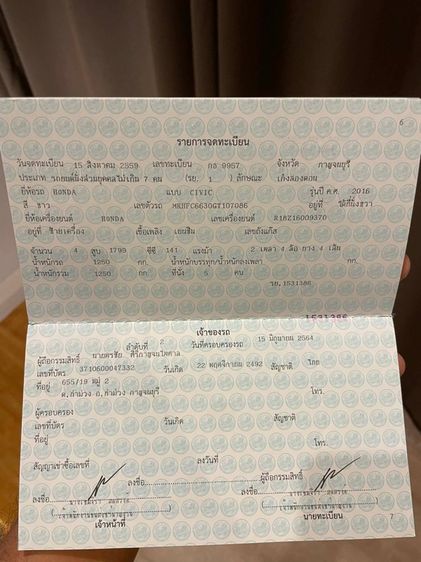 6
รายการจดทะเบียน
วันจดทะเบียน 15 สิงหาคม 2559 เลขทะเบียน กธ 9957 จังหวัด กาญจนบุรี
ประเภท รถยนต์นั่งส่วนบุคคลไม่เกิน 7 คน (รย. 1 ) ลักษณะ เก๋งสองตอน
ยี่ห้อรถ HONDA แบบ CIVIC รุ่นปี ค.ศ. 2016
สี ขาว เลขตัวรถ MRHFC6630GT107086 อยู่ที่
ยี่ห้อเครื่องยนต์ HONDA เลขเครื่องยนต์ R18Z16009370
อยู่ที่ ซ้ายเครื่อง เชื้อเพลิง เบนซิน เลขถังแก๊ส
จำนวน 4 สูบ 1799 ซีซี 141 แรงม้า 2 เพลา 4 ล้อ ยาง 4 เส้น
น้ำหนักรถ 1250 กก. น้ำหนักบรรทุก/น้ำหนักลงเพลา กก.
น้ำหนักรวม 1250 กก. ที่นั่ง 5 คน
รย. 1531386
1531386
เจ้าของรถ
ลำดับที่ 2 วันที่ครอบครองรถ 15 มิถุนายน 2564
ผู้ถือกรรมสิทธิ์
เลขที่บัตร 3710600047332 วันเกิด 22 พฤศจิกายน 2492 สัญชาติ ไทย
ที่อยู่ 655/19 หมู่ 2
กาญจนบุรี โทร.
ผู้ครอบครอง
เลขที่บัตร วันเกิด สัญชาติ
ที่อยู่
โทร.
สัญญาเช่าซื้อเลขที่ ลงวันที่
ลงชื่อ ผู้ถือกรรมสิทธิ์
ลงชื่อ ลงชื่อ
เจ้าหน้าที่ นายทะเบียน
7